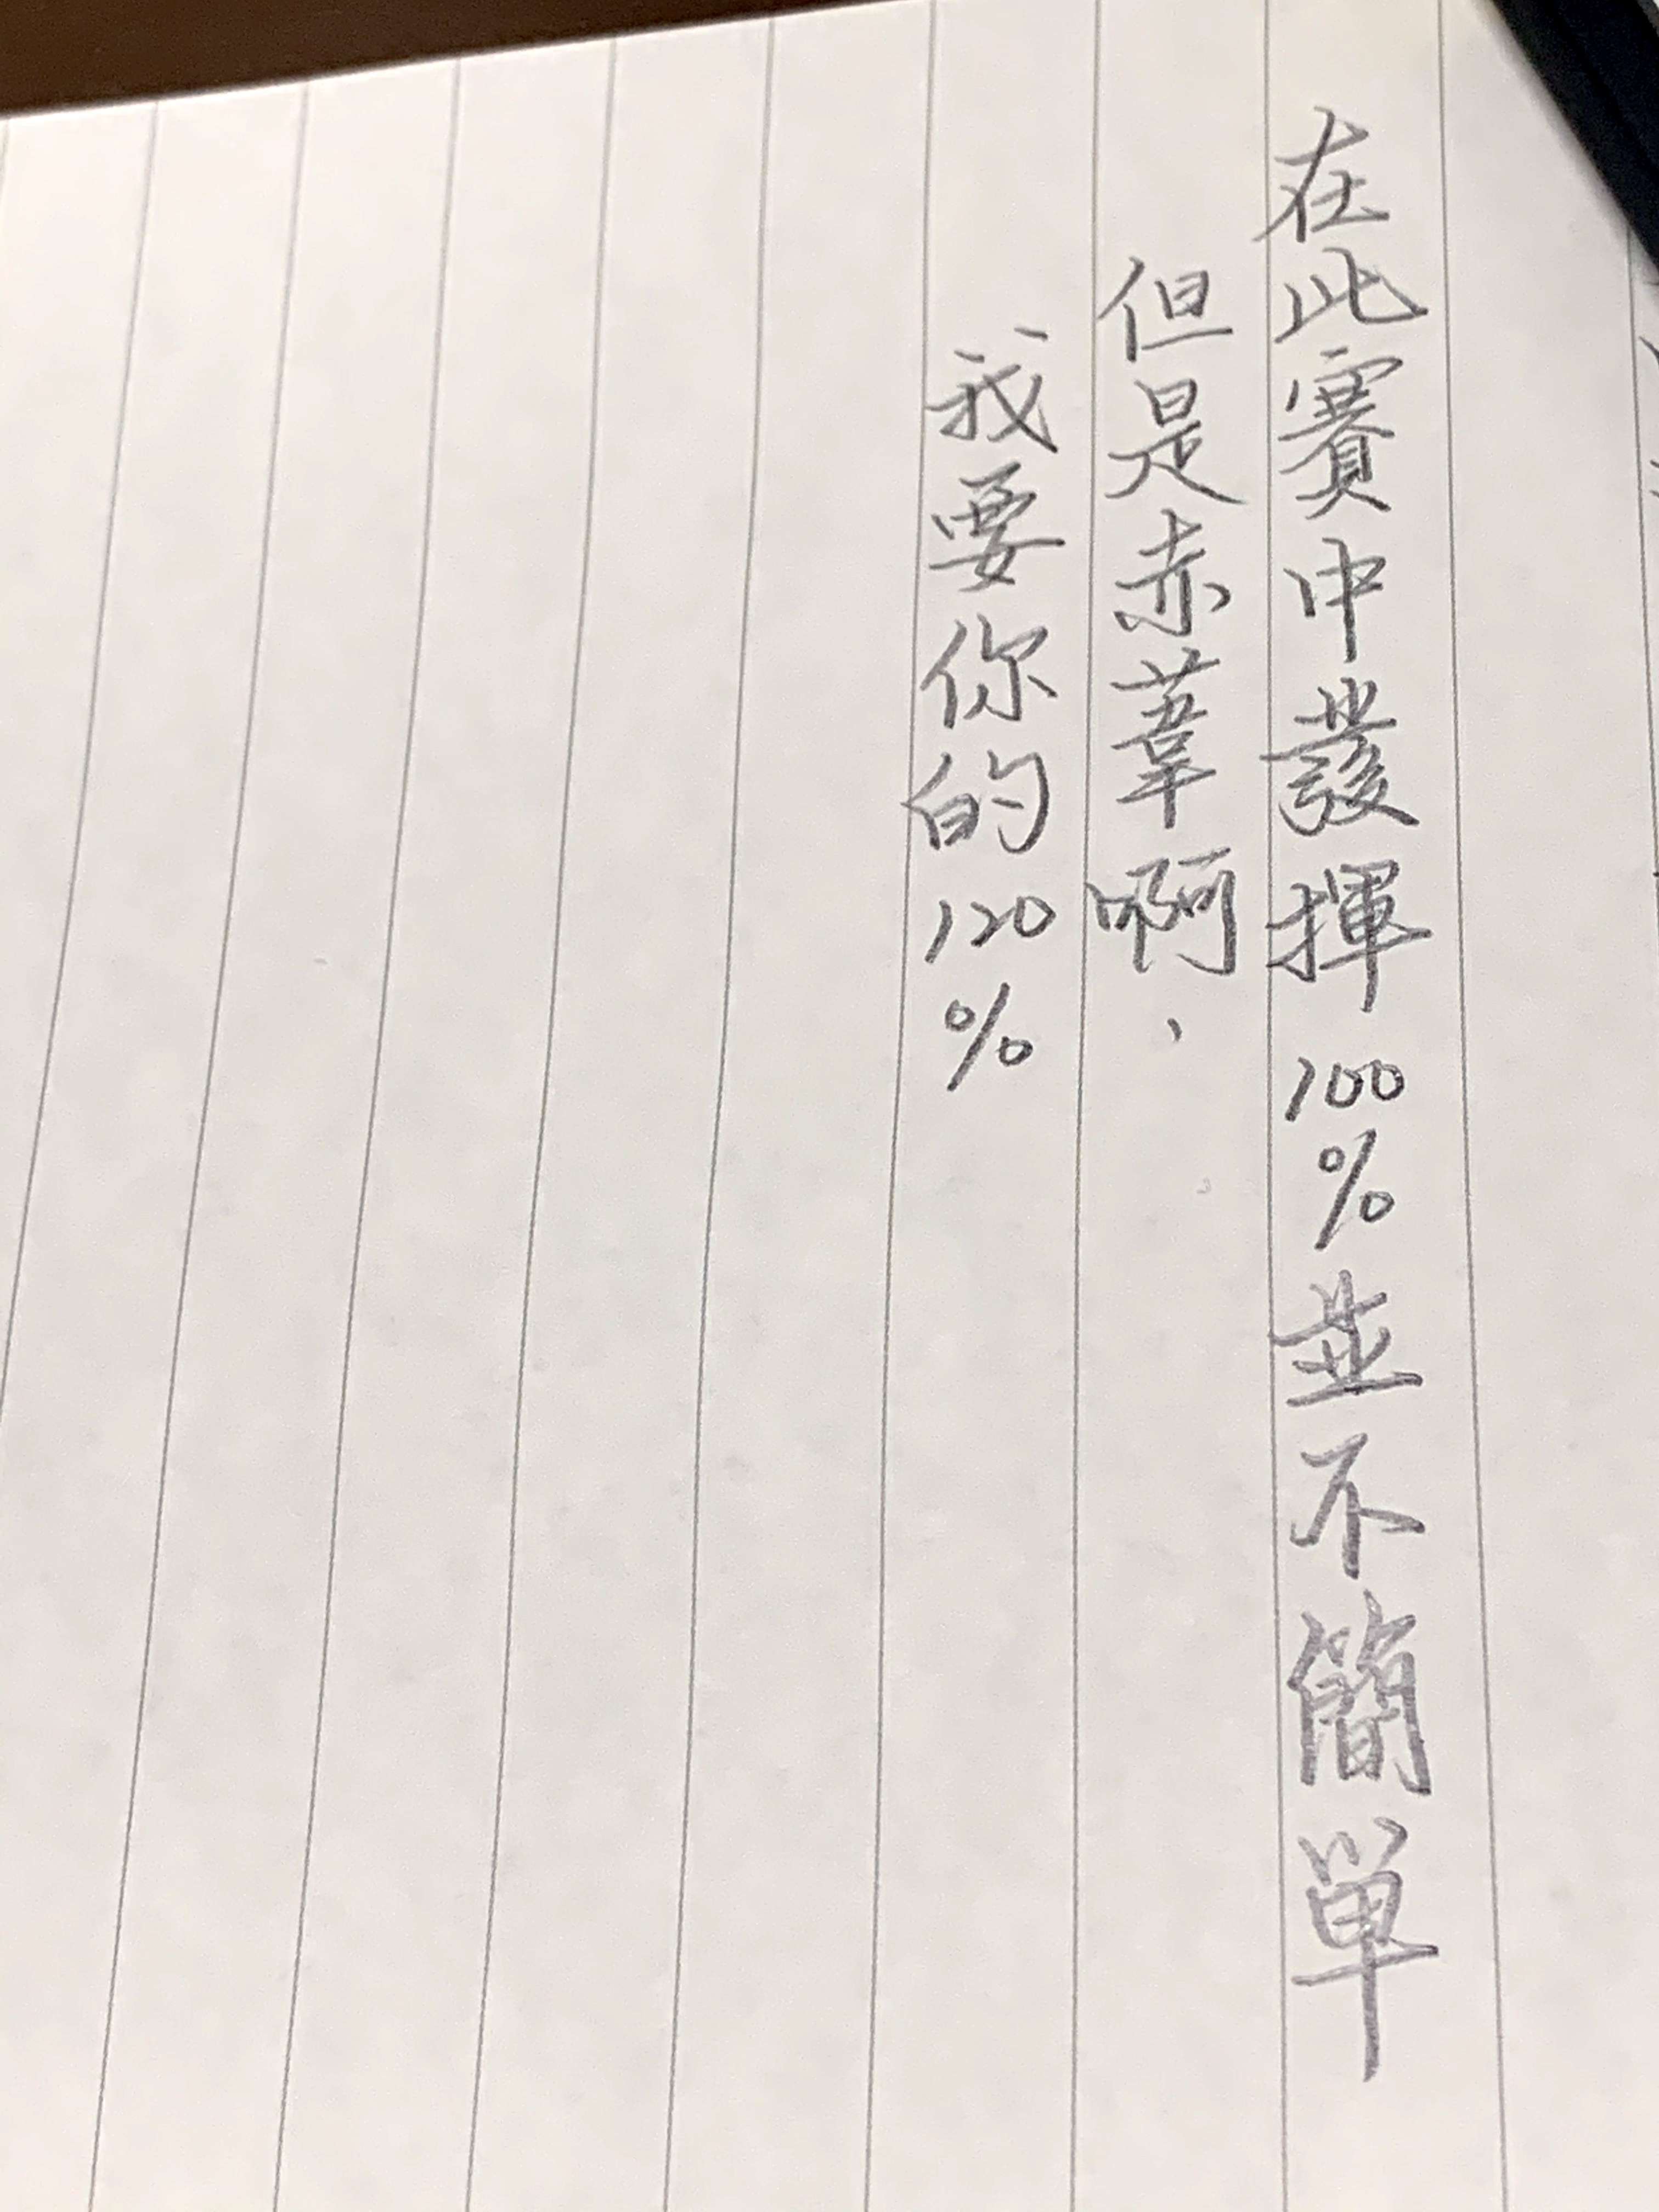 在此賽中發揮100%並不簡單
但是赤葦啊、
我要你的120%